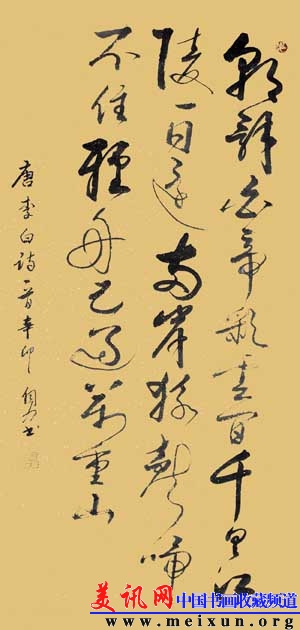 朝辞白帝彩雲间千里江
陵一日還两岸猿聲啼
不住輕舟已過萬重山
唐李白诗一首辛卯 书
美讯网 中国书画收藏频道
www.meixun.org